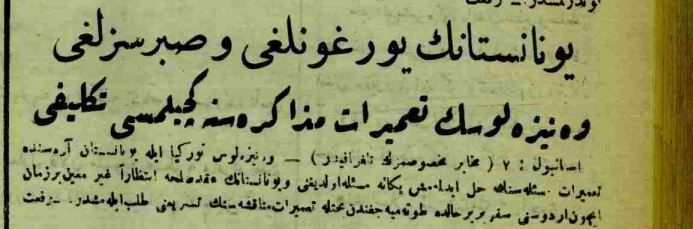 یونانستانك یورغونلغی و صبرسزلغی
وه نیزه لوسك تعمیرات مذاكره سنه كچیلمسی تكلیفی
استانبول : ۷ ( مخابر مخصوصمزك تلغرافیدر ) — وه نیزه لوس توركیا ایله یونانستان آره سنده
تعمیرات مسئله سنك حل ایدلمه مش یكانه مسئله اولدیغنی و یونانستانك عقد صلحه انتظاراً غیر معین بر زمان
ایچون اردوسنی سفربر بر حالده طوته میه جغندن بحثله تعمیرات مناقشه سنك تسریعنی طلب ایله مشدر. — رفعت